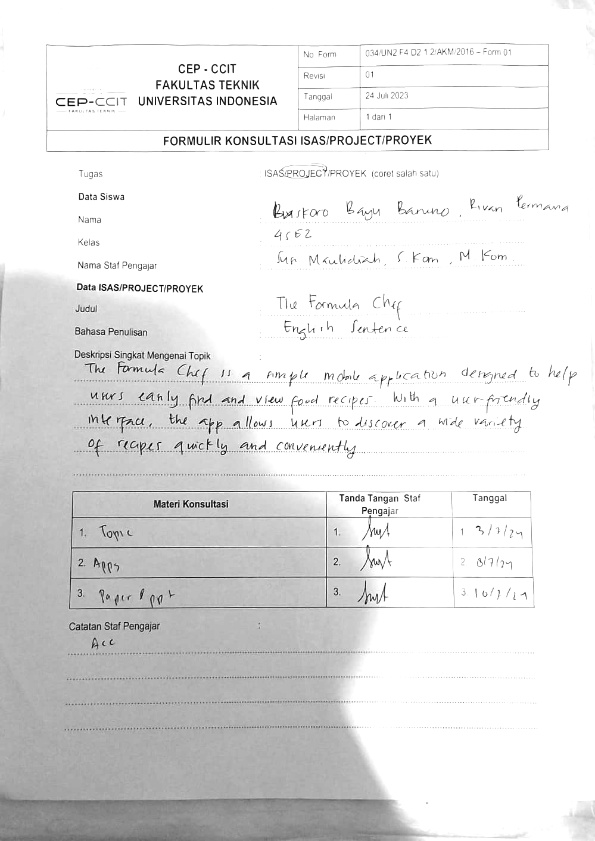 No. Form 034/UN2.F4.D2.1.2/AKM/2016 – Form 01
CEP - CCIT
FAKULTAS TEKNIK
UNIVERSITAS INDONESIA
CEP-CCIT
FAKULTAS TEKNIK
Revisi 01
Tanggal 24 Juli 2023
Halaman 1 dari 1
FORMULIR KONSULTASI ISAS/PROJECT/PROYEK
Tugas ISAS/PROJECT/PROYEK (coret salah satu)
Data Siswa
Nama : Baskoro Bayu Baruno, Rivan Permana
Kelas : 4SE2
Nama Staf Pengajar : Maulidiah, S Kom, M Kom
Data ISAS/PROJECT/PROYEK
Judul : The Formula Chef
Bahasa Penulisan : English Sentence
Deskripsi Singkat Mengenai Topik :
The Formula Chef is a simple mobile application designed to help
users easily find and view food recipes With a user-friendly
interface, the app allows users to discover a wide variety
of recipes quickly and conveniently
Materi Konsultasi Tanda Tangan Staf Pengajar Tanggal
1. Topic 1. 1 3/7/24
2. Apps 2. 2 8/7/24
3. Paper & ppt 3. 3 10/7/24
Catatan Staf Pengajar :
Acc